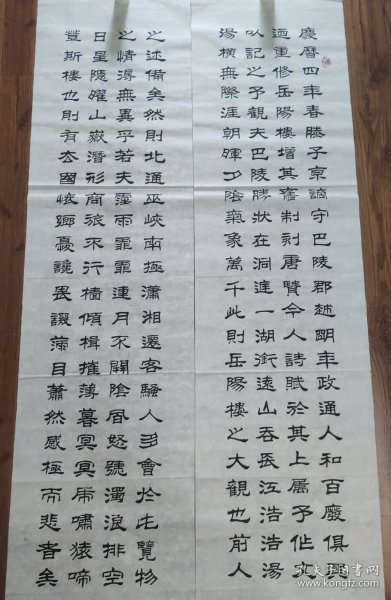 慶曆四年春滕子京謫守巴陵郡越明年政通人和百廢俱興
迺重修岳陽樓增其舊制刻唐賢今人詩賦於其上屬予作文
以記之予觀夫巴陵勝狀在洞庭一湖銜遠山吞長江浩浩湯
湯橫無際涯朝暉夕陰氣象萬千此則岳陽樓之大觀也前人
之述備矣然則北通巫峽南極瀟湘遷客騷人多會於此覽物
之情得無異乎若夫霪雨霏霏連月不開陰風怒號濁浪排空
日星隱曜山嶽潛形商旅不行檣傾楫摧薄暮冥冥虎嘯猿啼
登斯樓也則有去國懷鄉憂讒畏譏滿目蕭然感極而悲者矣
孔夫子旧书网
kongfz.com